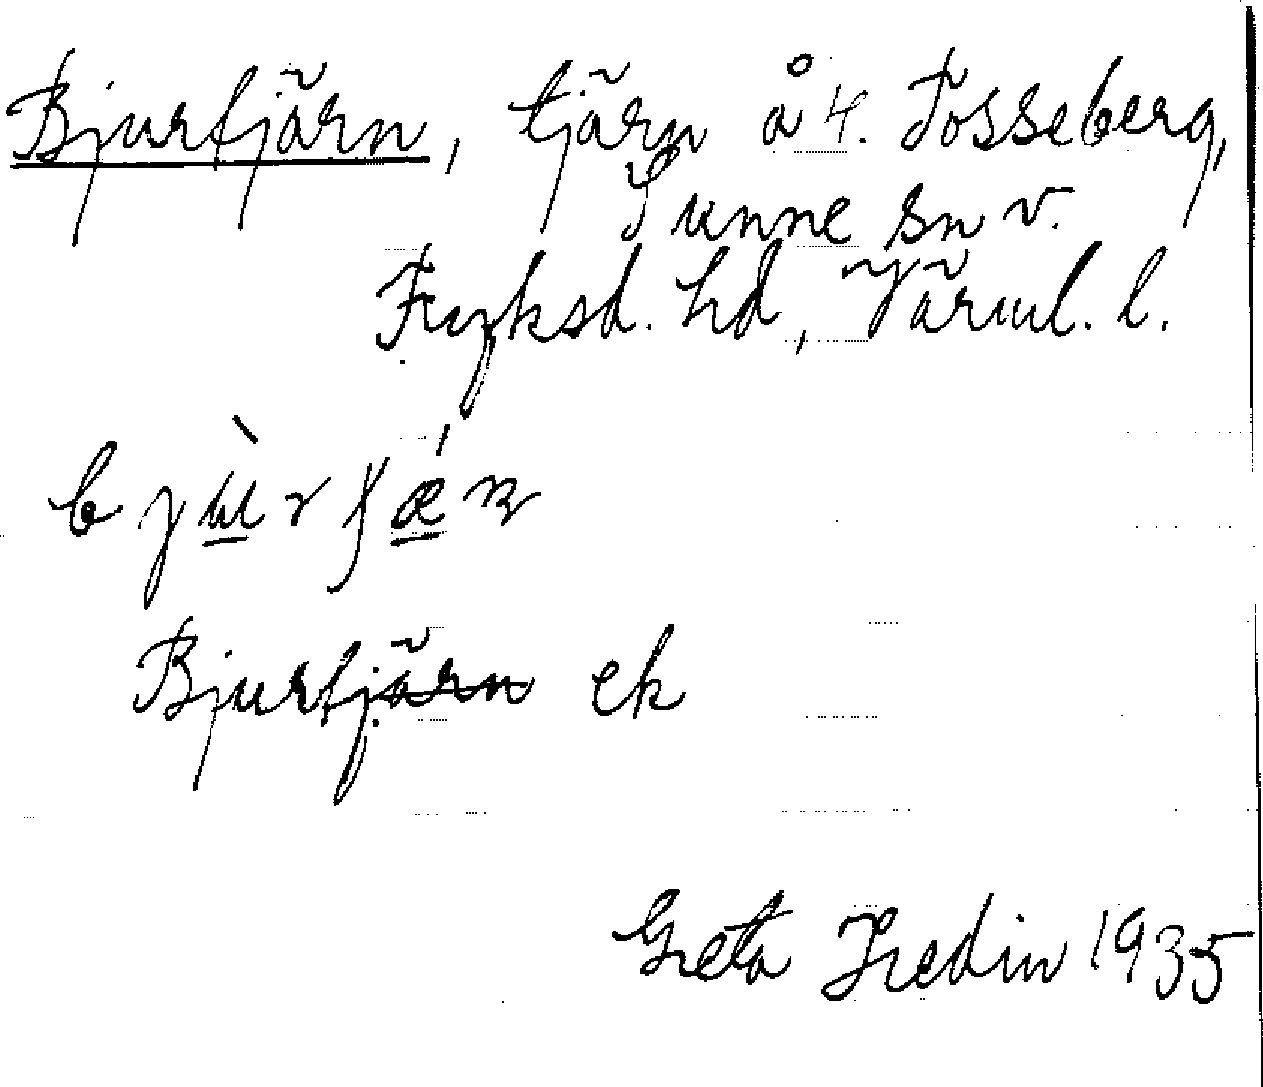 Bjurtjärn, tjärn å 4. Tosseberg,
Sunne sn v.
Fryksd. hd, Värml. l.
bjùrʃǽɳ
Bjurtjärn ek
Greta Hedin 1935